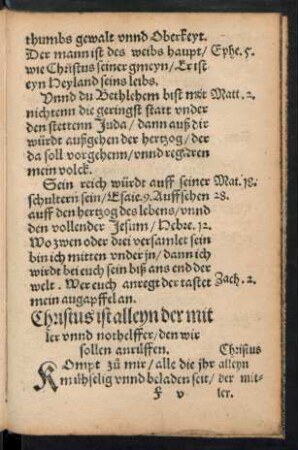 thumbs gewalt vnnd Oberkeyt.
Der mann ist des weibs haupt/ Ephe. 5.
wie Christus seiner gmeyn/ Er ist
eyn Heyland seins leibs.
Vnnd du Bethlehem bist mőt Matt. 2.
nichtenn die geringst statt vnder
den stettenn Juda/ dann auß dir
würdt außgehen der hertzog/ der
da soll vorgehenn/ vnnd regieren
mein volck.
Sein reich würdt auff seiner Mat. 18.
schultern sein/ Esaie. 9. Auffsehen 28.
auff den hertzog des lebens/ vnnd
den vollender Jesum/ Hebre. 12.
Wo zwen oder drei versamlet sein
bin ich mitten vnder jn/ dann ich
wirdt bei euch sein biß ans end der
welt. Wer euch anregt der tastet Zach. 2.
mein augapffel an.
Christus ist alleyn der mit
ler vnnd nothelffer/ den wir
sollen anrüffen. Christus
Kompt zů mir/ alle die jhr alleyn
mühselig vnnd beladen seit/ der mit-
F v ler.